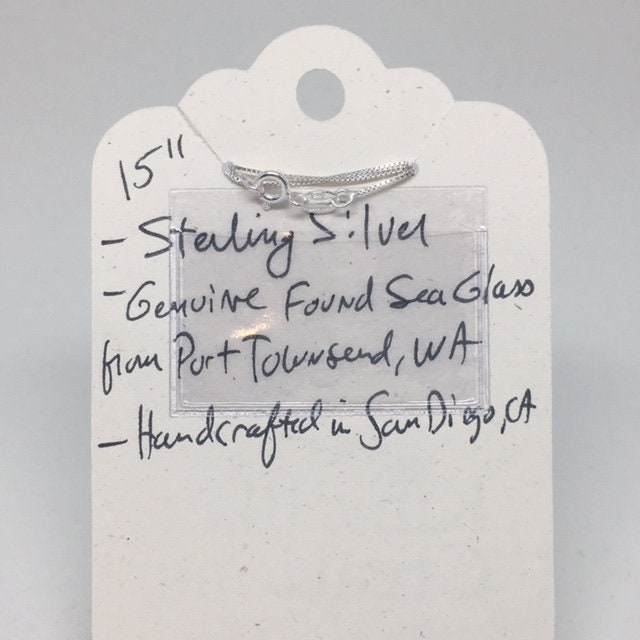 15"
- Sterling Silver
- Genuine Found Sea Glass
from Port Townsend, WA
- Handcrafted in San Diego, CA